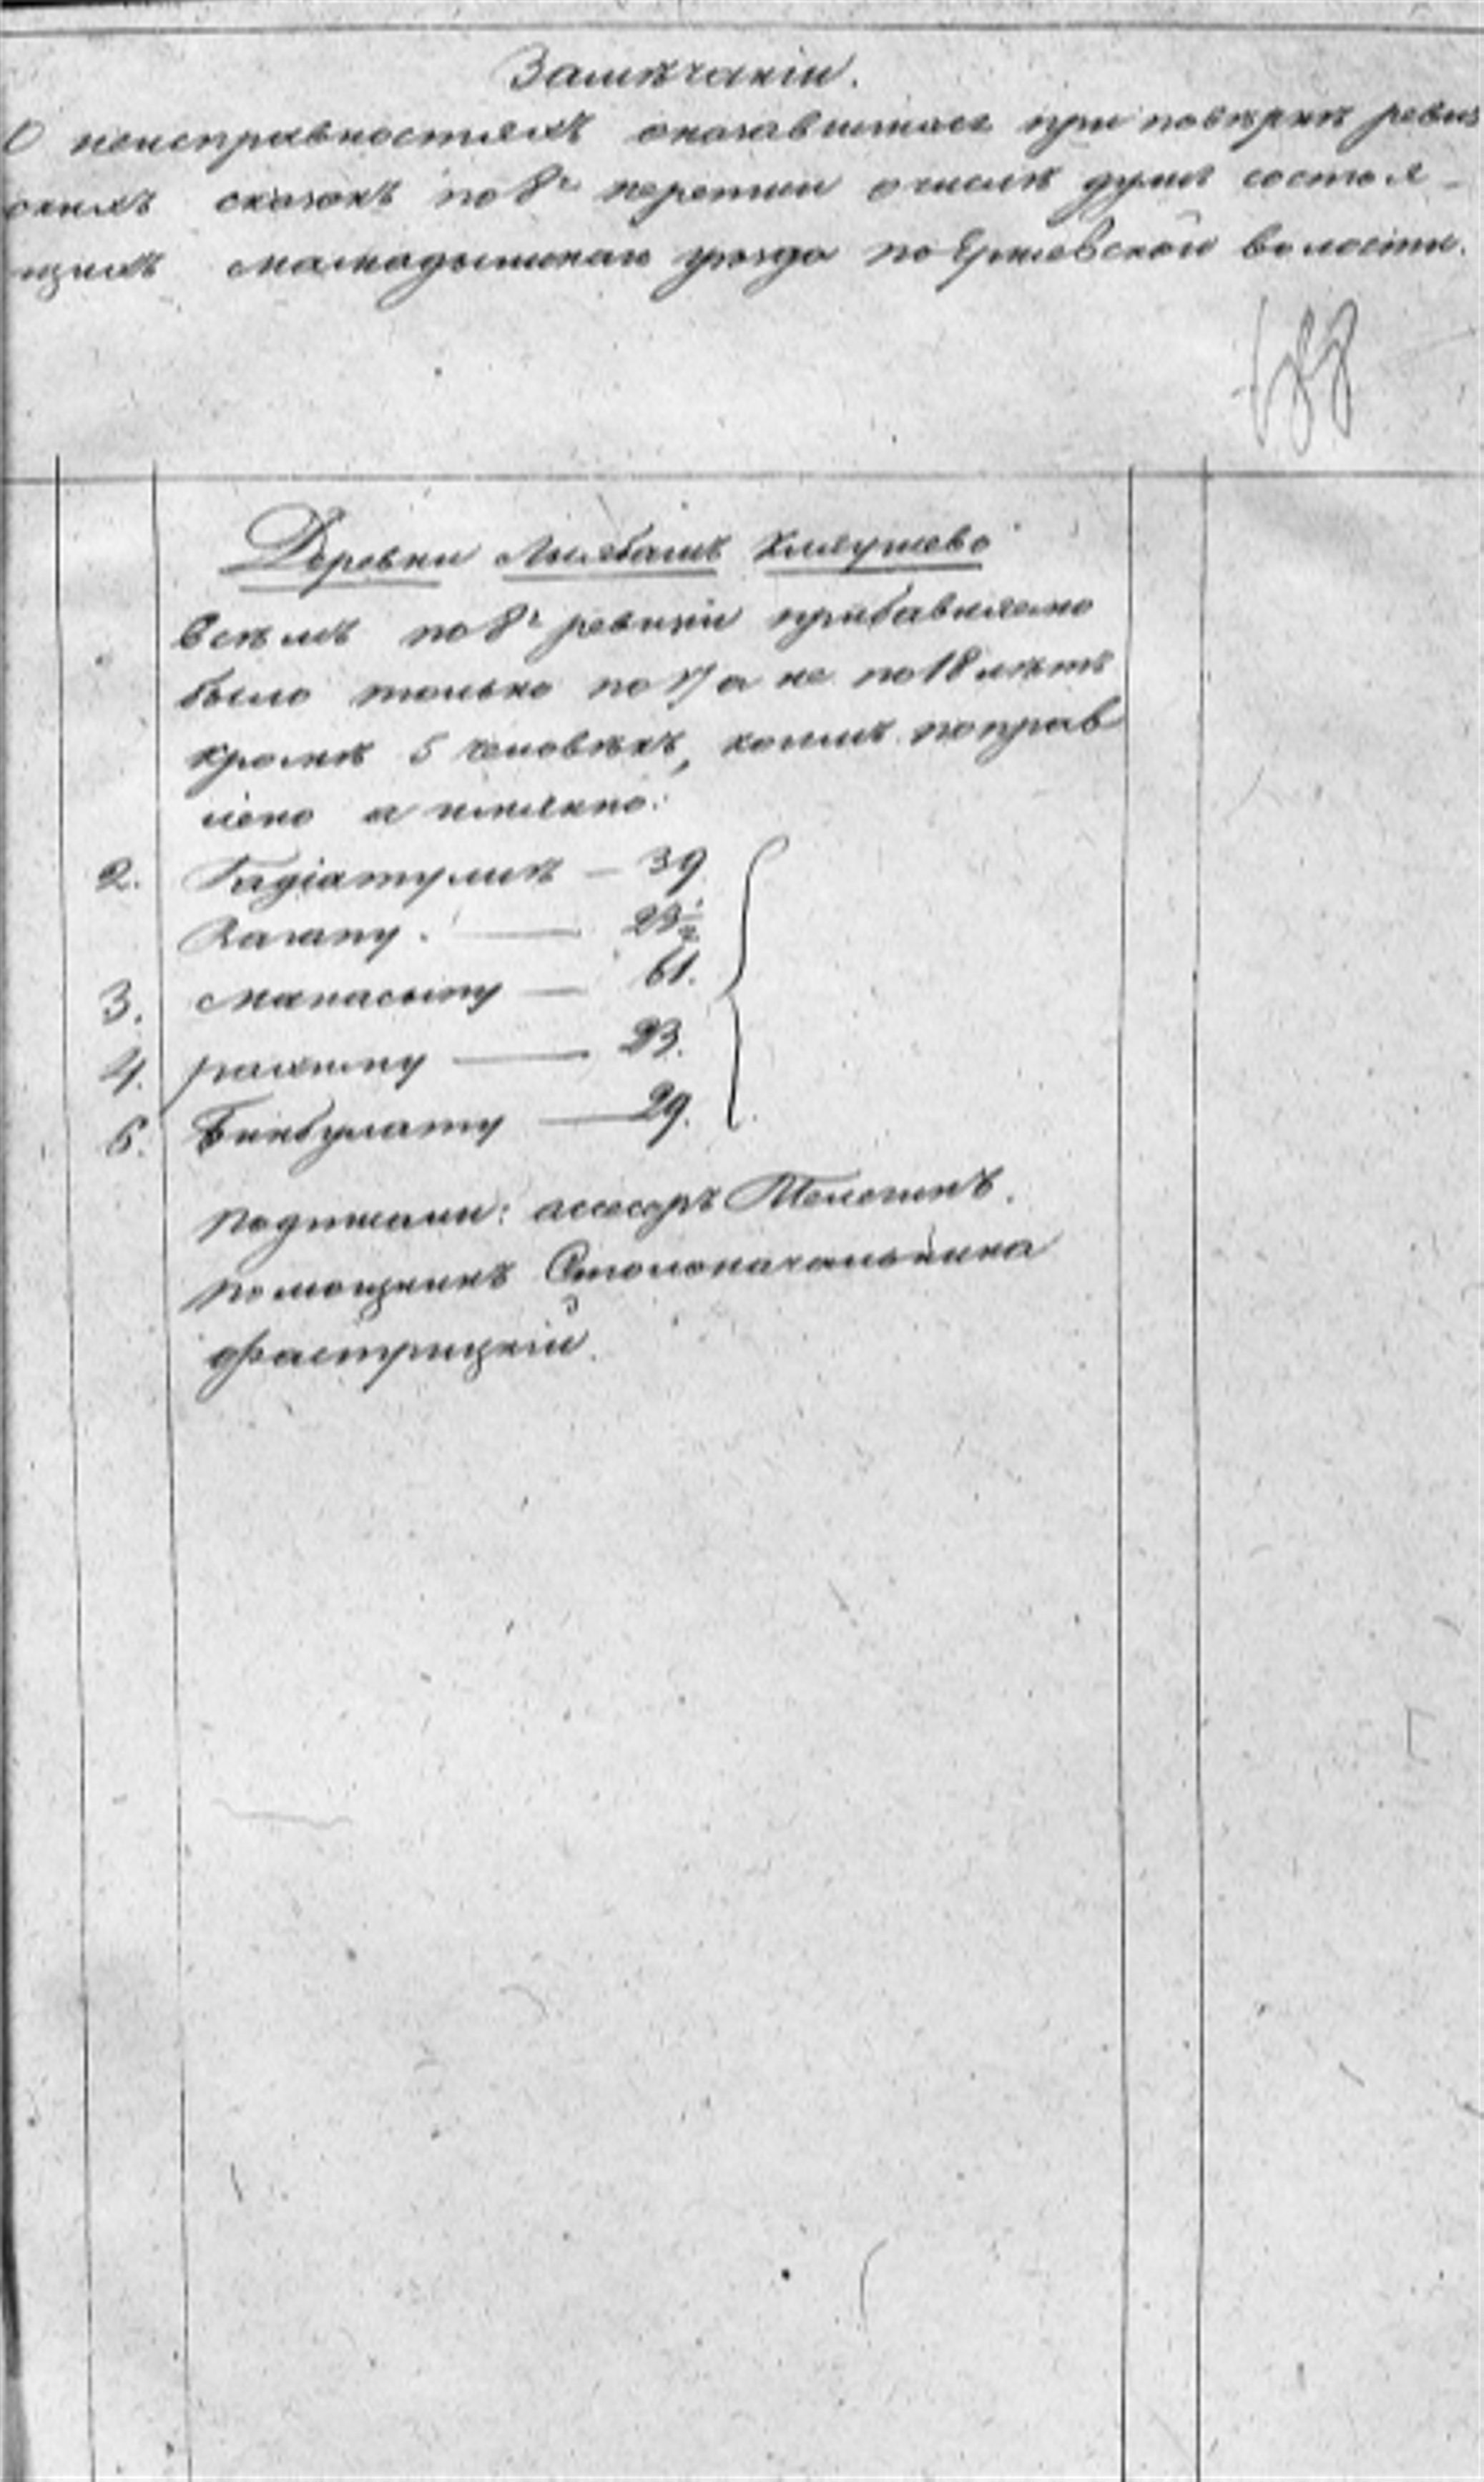 Замѣчаніи.
О неисправностяхъ оказавшихся при повѣркѣ ревиз
скихъ сказокъ по 8й переписи о числѣ душъ состоя-
щихъ Мамадышскаго уѣзда по волости.
188
Деревни Кляушево
Всѣмъ по 8й ревизіи прибавляемо
было только по 17 а не по 18 лѣтъ
кромѣ 5 человѣкъ, коимъ поправ
лено а имянно:
2. Гадіатулиѣ — 39
Вагапу. — 23½
3. Манасыпу — 61.
4. рахиму — 23.
6. Бикбулату — 29.
Подписали: ассесоръ Телегинъ.
помощникъ Столоначальника